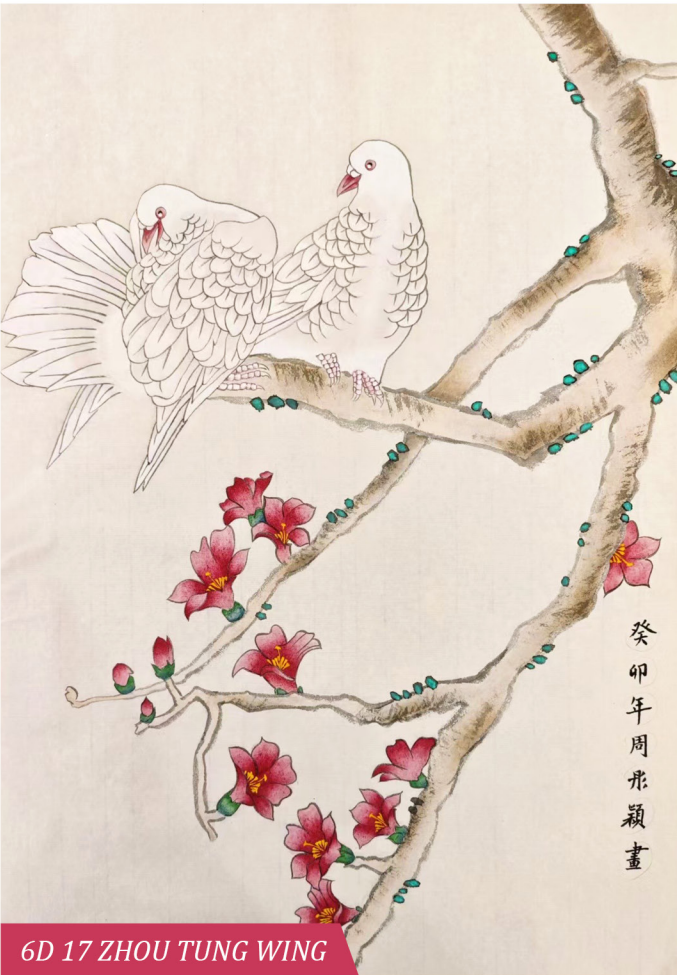 癸卯年周彤穎畫
6D 17 ZHOU TUNG WING